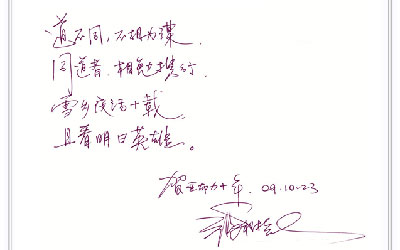 道不同，不相为谋，
同道者，相勉携行。
雪乡夜话十载，
且看明日英雄。
贺亚布力十年 09.10.23